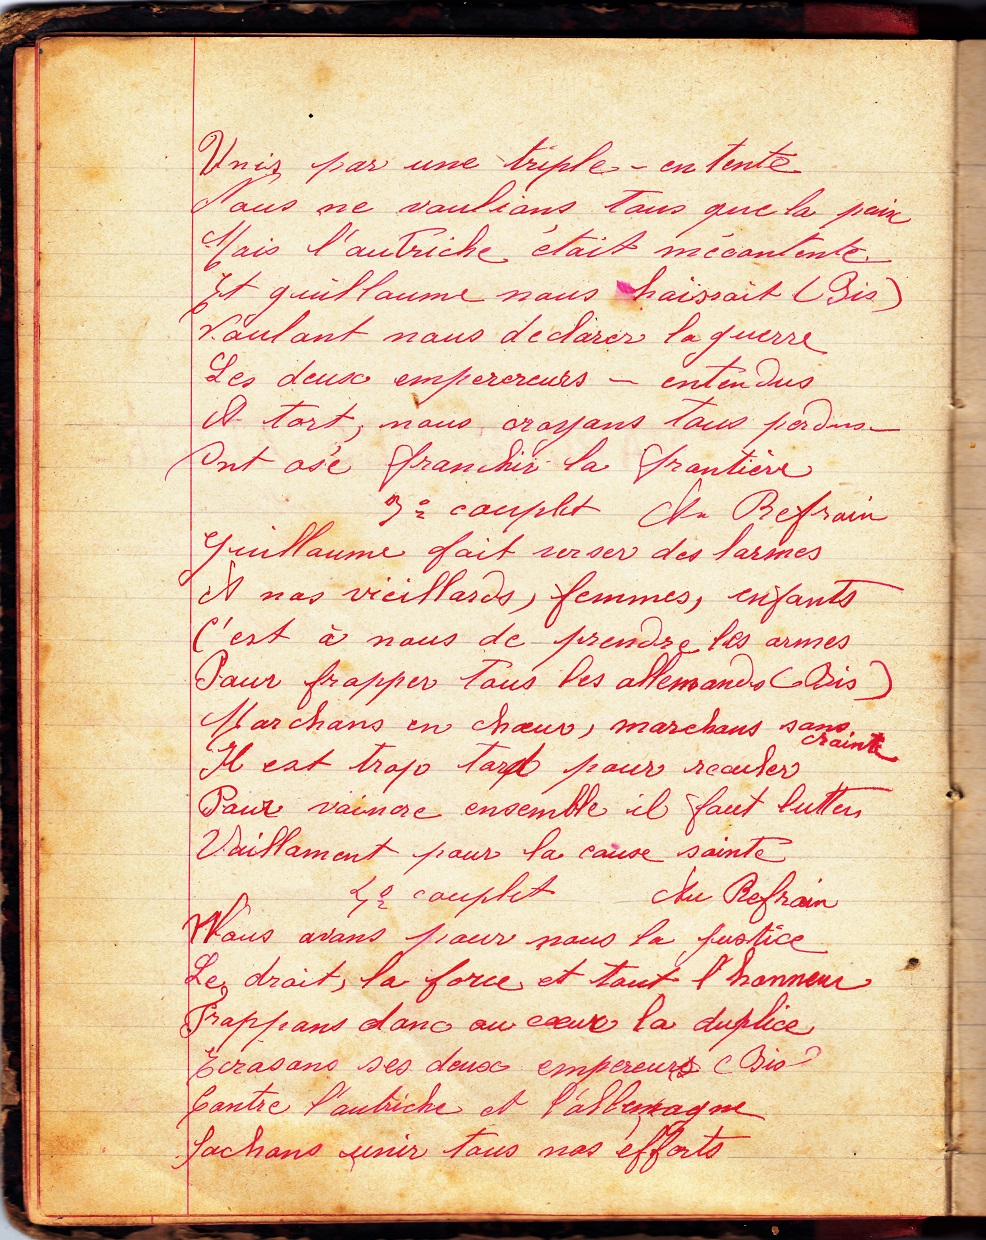 Unis par une triple - entente
Nous ne voulions tous que la paix
Mais l'autriche était mécontente
Et guillaume nous haissait (Bis)
Voulant nous declarer la guerre
Les deux empercreurs — entendus
A tort, nous croyans tous perdus
Ont osé franchir la frontière
3e couplet Au Refrain
Guillaume fait verser des larmes
A nos vieillards, femmes, enfants
C'est à nous de prendre les armes
Pour frapper tous les allemands (Bis)
Marchons en chœur, marchons sans
crainte
Il est trop tard pour reculer
Pour vaincre ensemble il faut lutter
Vaillament pour la cause sainte
4e couplet Au Refrain
Nous avons pour nous la justice
Le droit, la force et tout l'honneur
Frappons donc au cœur la duplice
Ecrasons ses deux empereurs (Bis)
Contre l'autriche et l'allemagne
Sachons unir tous nos éfforts